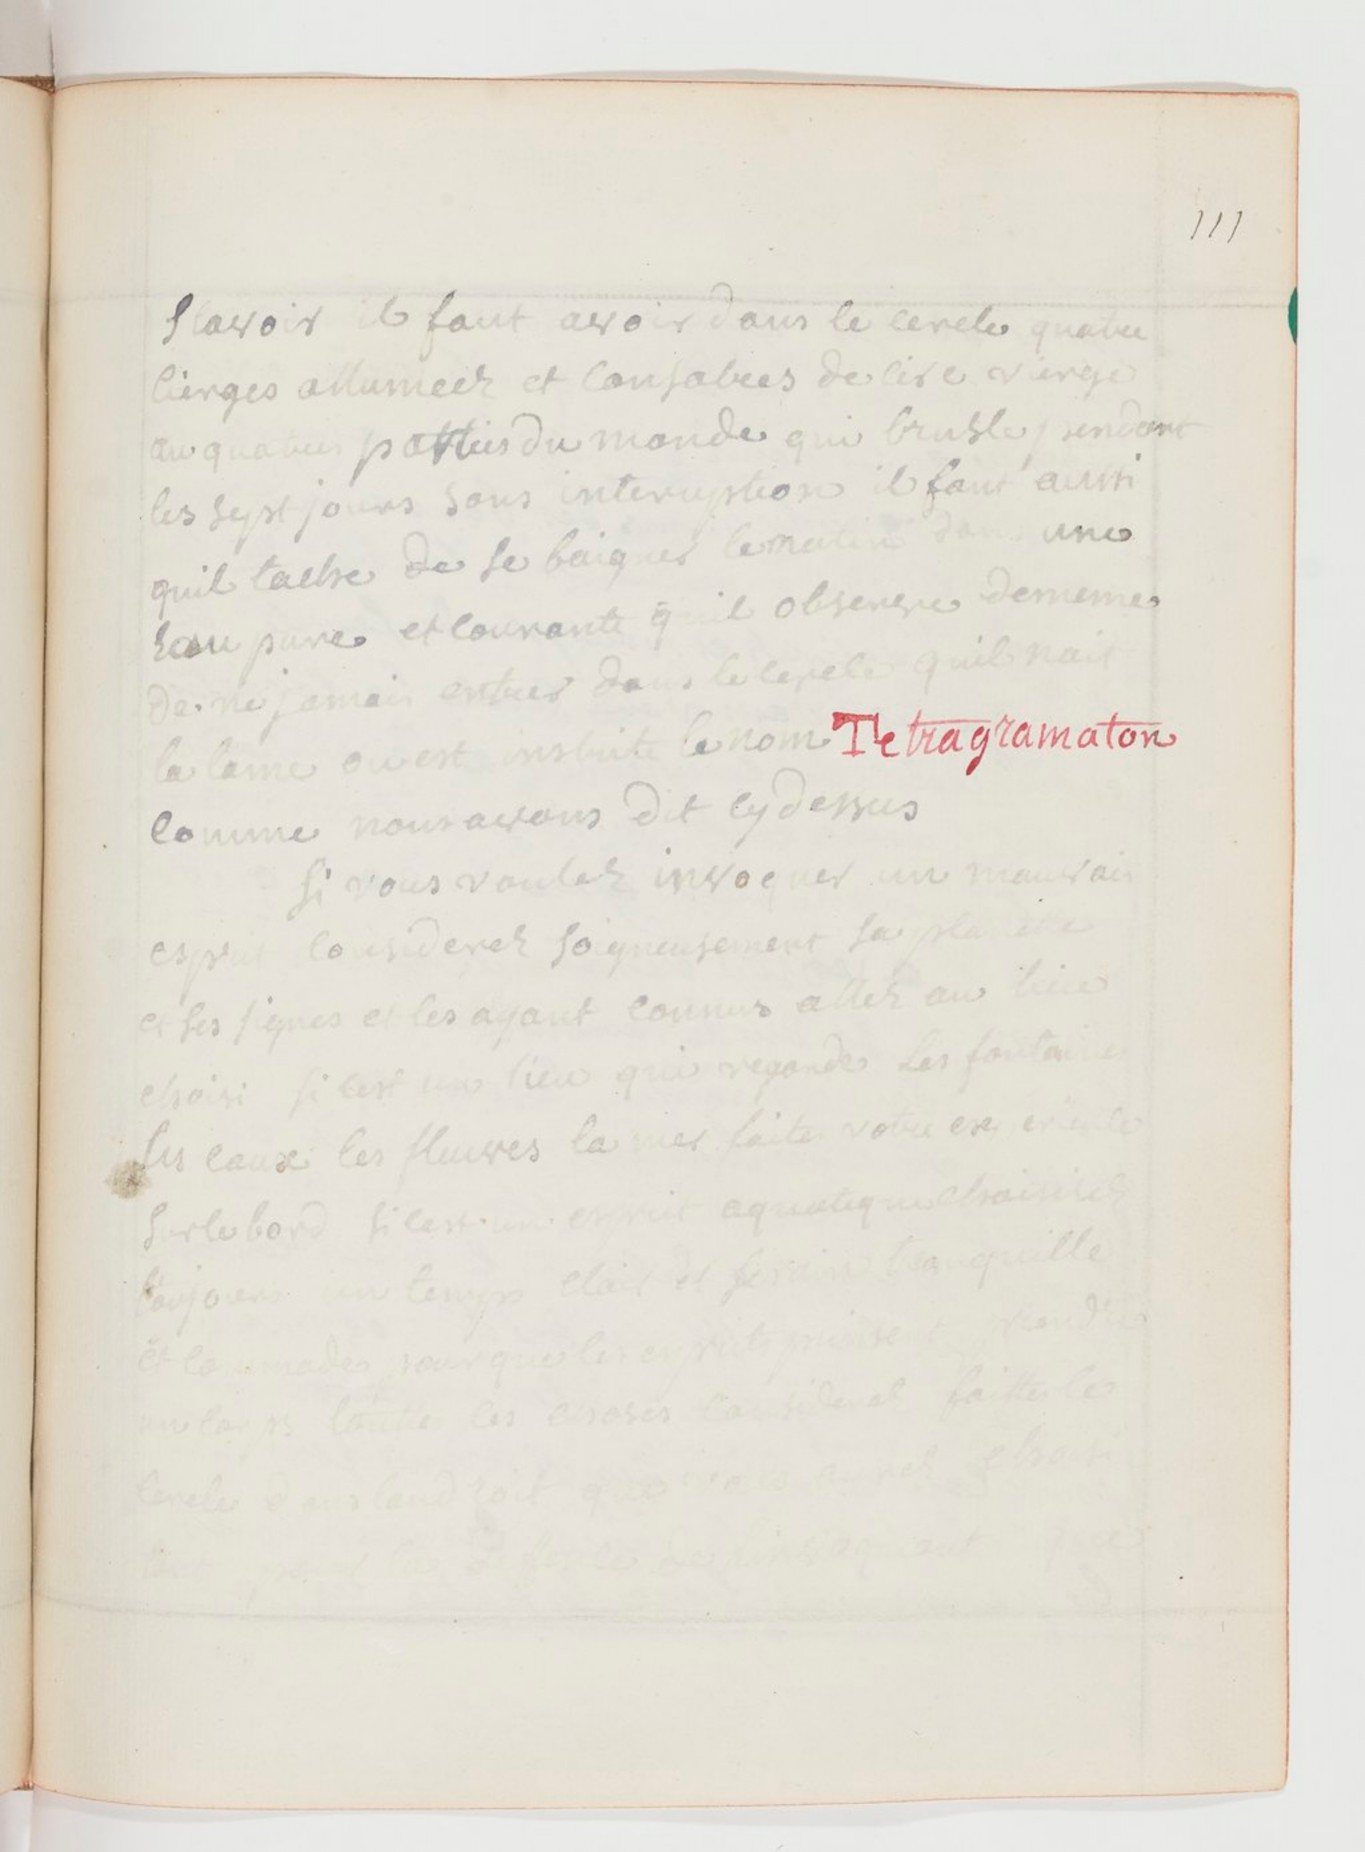 111
scavoir il faut avoir dans le cercle quatre
cierges allumeez et consacrees de cire vierge
au quatres parties du monde qui brusle pendant
les sept jours sans interuption il faut aussi
quil tache de se baigner le matin dans une
eau pure et courante quil observe dememe
de ne jamais entrer dans le cercle quil nait
la lame ou est inscrite le nom Tetragramaton
comme nous avons dit cy dessus
Si vous voulez invoquer un mauvais
esprit considerez soigneusement sa planette
et ses signes et les ayant connus allez au lieu
choisi si cest un lieu qui regarde les fontaines
les eaux les fleuves la mer faite votre experience
sur le bord si cest un esprit aquatique choisisez
toujours un temps clair et serain tranquille
et commode pour que les esprits puissent prendre
un corps toutte les choses considerez faitte le
cercle dans lendroit que vous aurez choisi
tant pour la